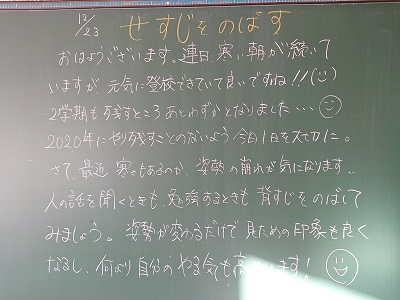 12/23 せすじをのばす
おはようございます。連日、寒い朝が続いて
いますが 元気に登校できていて良いですね!!
2学期も残すところあとわずかとなりました…
2020年にやり残すことのないよう 今日1日を大切に。
さて、最近 寒さもあるのか、姿勢の崩れが気になります。
人の話を聞くときも、勉強するときも 背すじをのばして
みましょう。姿勢が変わるだけで 見ための印象も良く
なるし、何より自分のやる気も高まります!